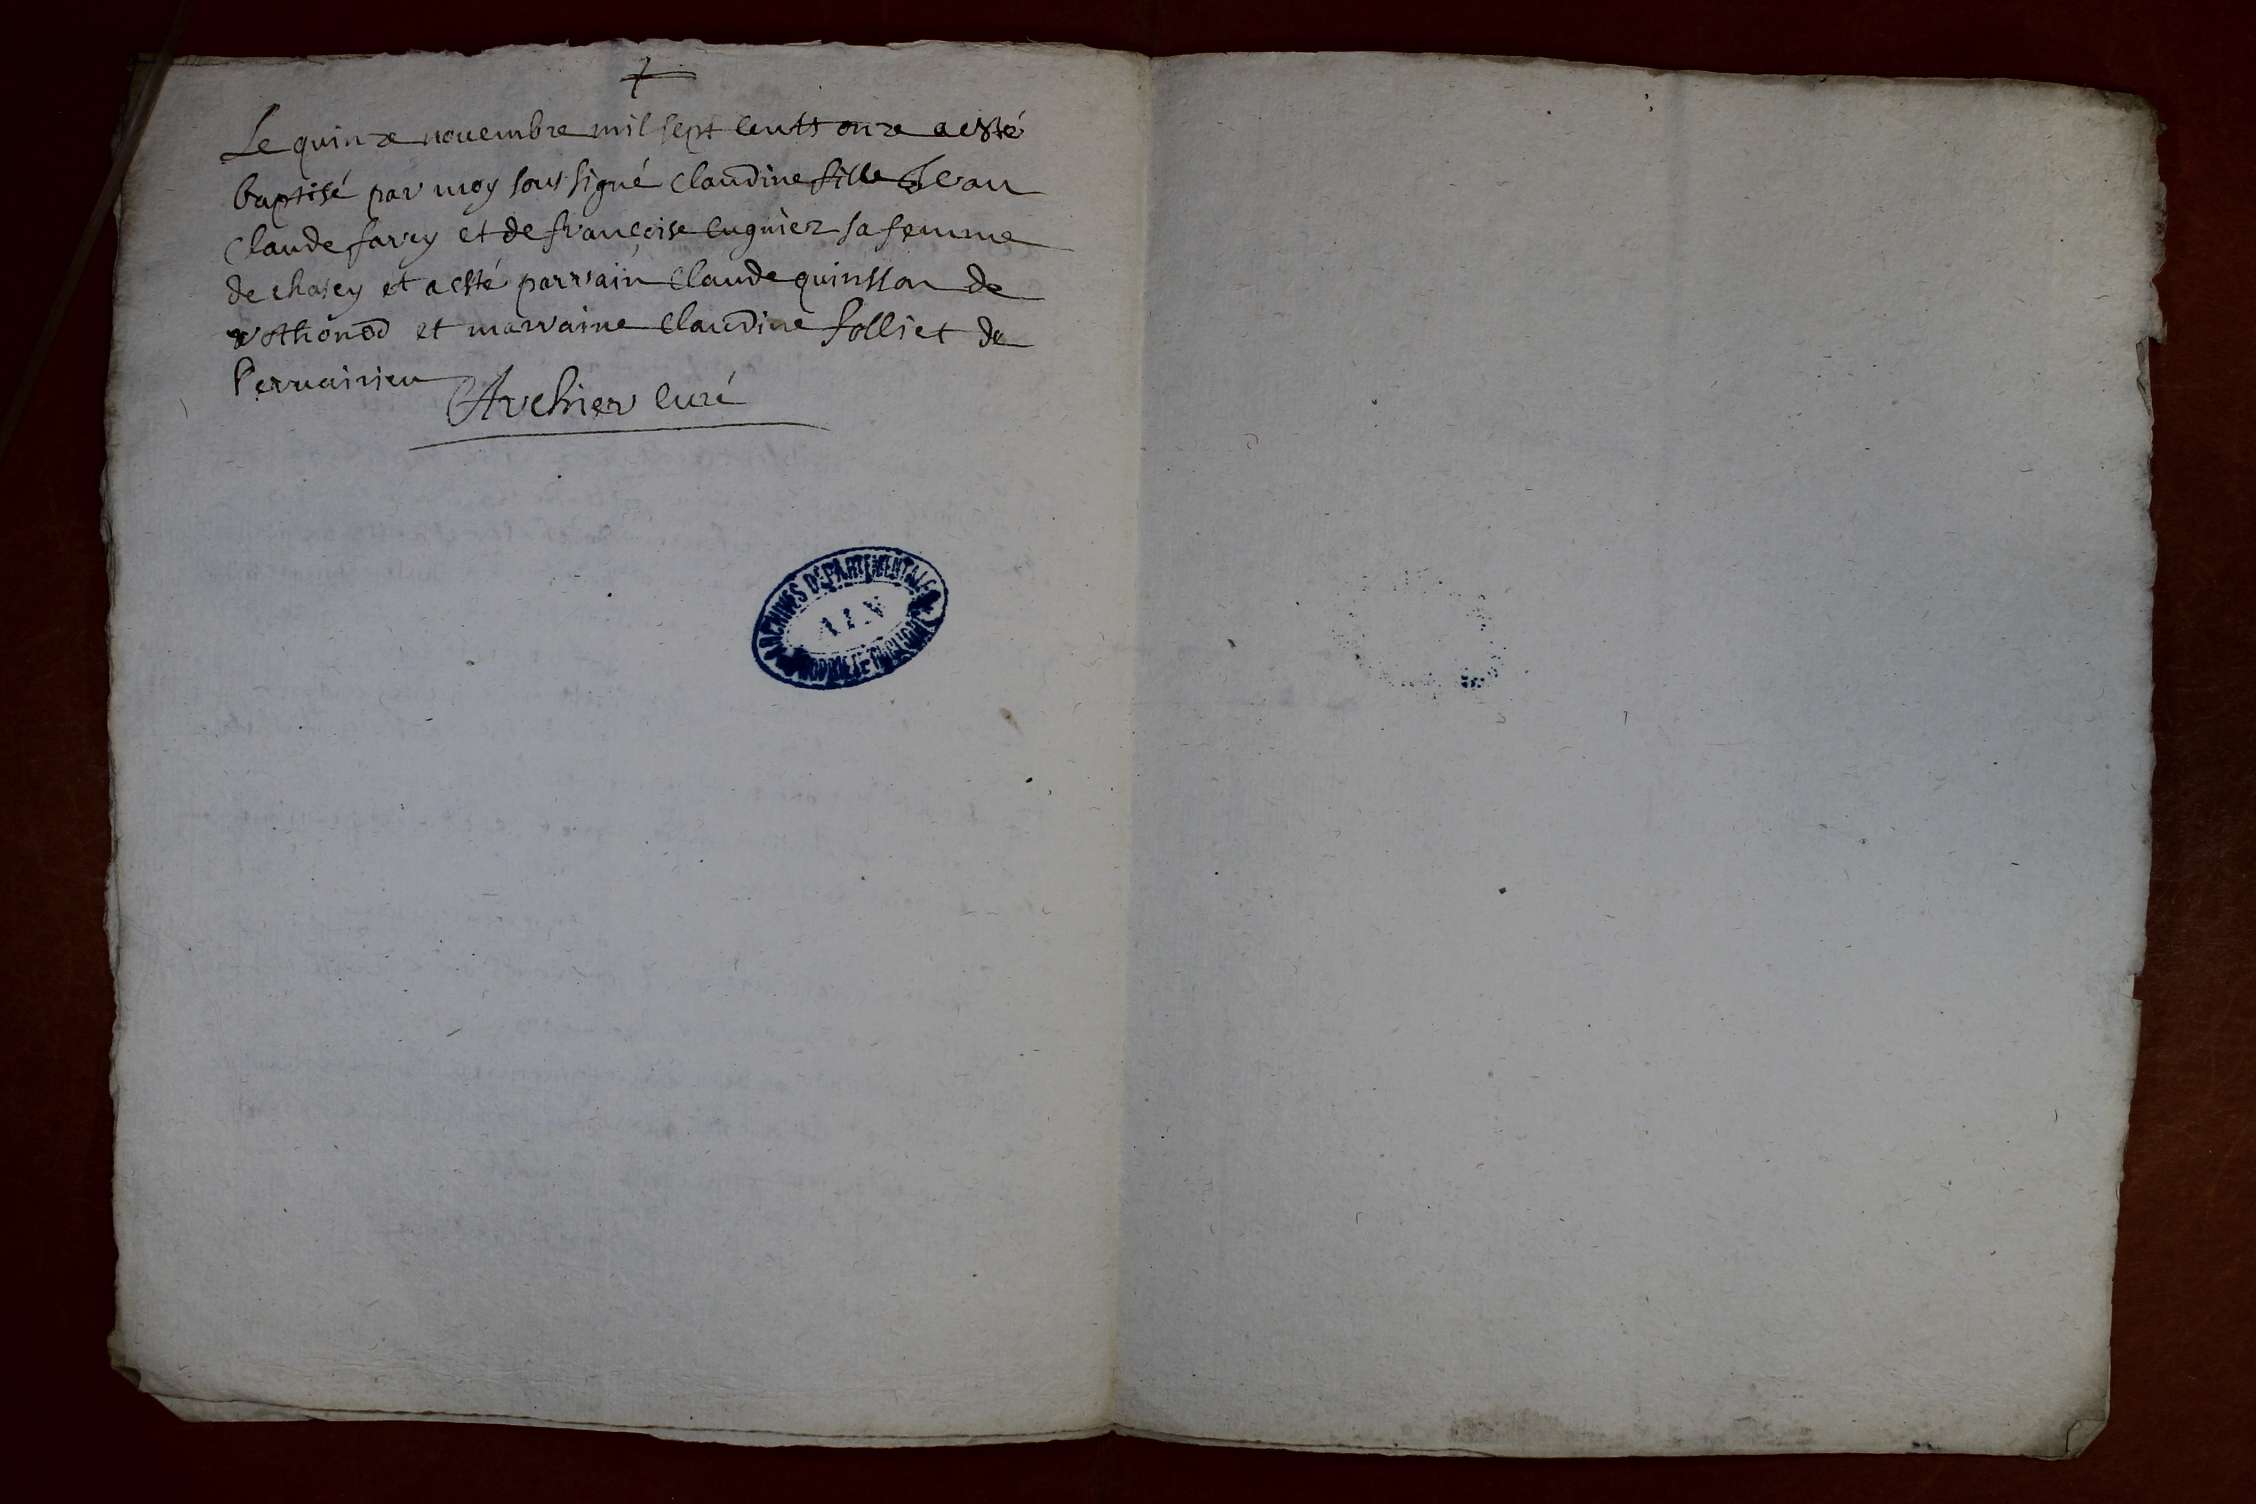 Le quinze novembre mil sept cents onze a esté
baptisé par moy soussigné Claudine fille de Jean
Claude farcy et de françoise cugniez sa femme
de chasey et a esté parrain Claude quinsson de
rothonod et marraine Claudine folliet de
pervainieu
Archier curé
ARCHIVES DÉPARTEMENTALES
AIN
PROPRIÉTÉ PUBLIQUE